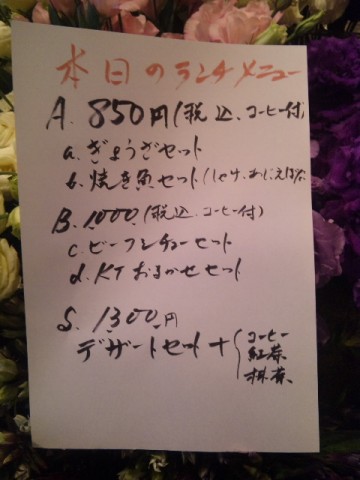 本日のランチメニュー
A. 850円(税込、コーヒー付)
a. ぎょうざセット
b. 焼き魚セット(しゃけ、あじ、えぼ
B. 1,000(税込、コーヒー付)
c. ビーフシチューセット
d. KTおまかせセット
S. 1300円
デザートセット + {コーヒー
紅茶
抹茶